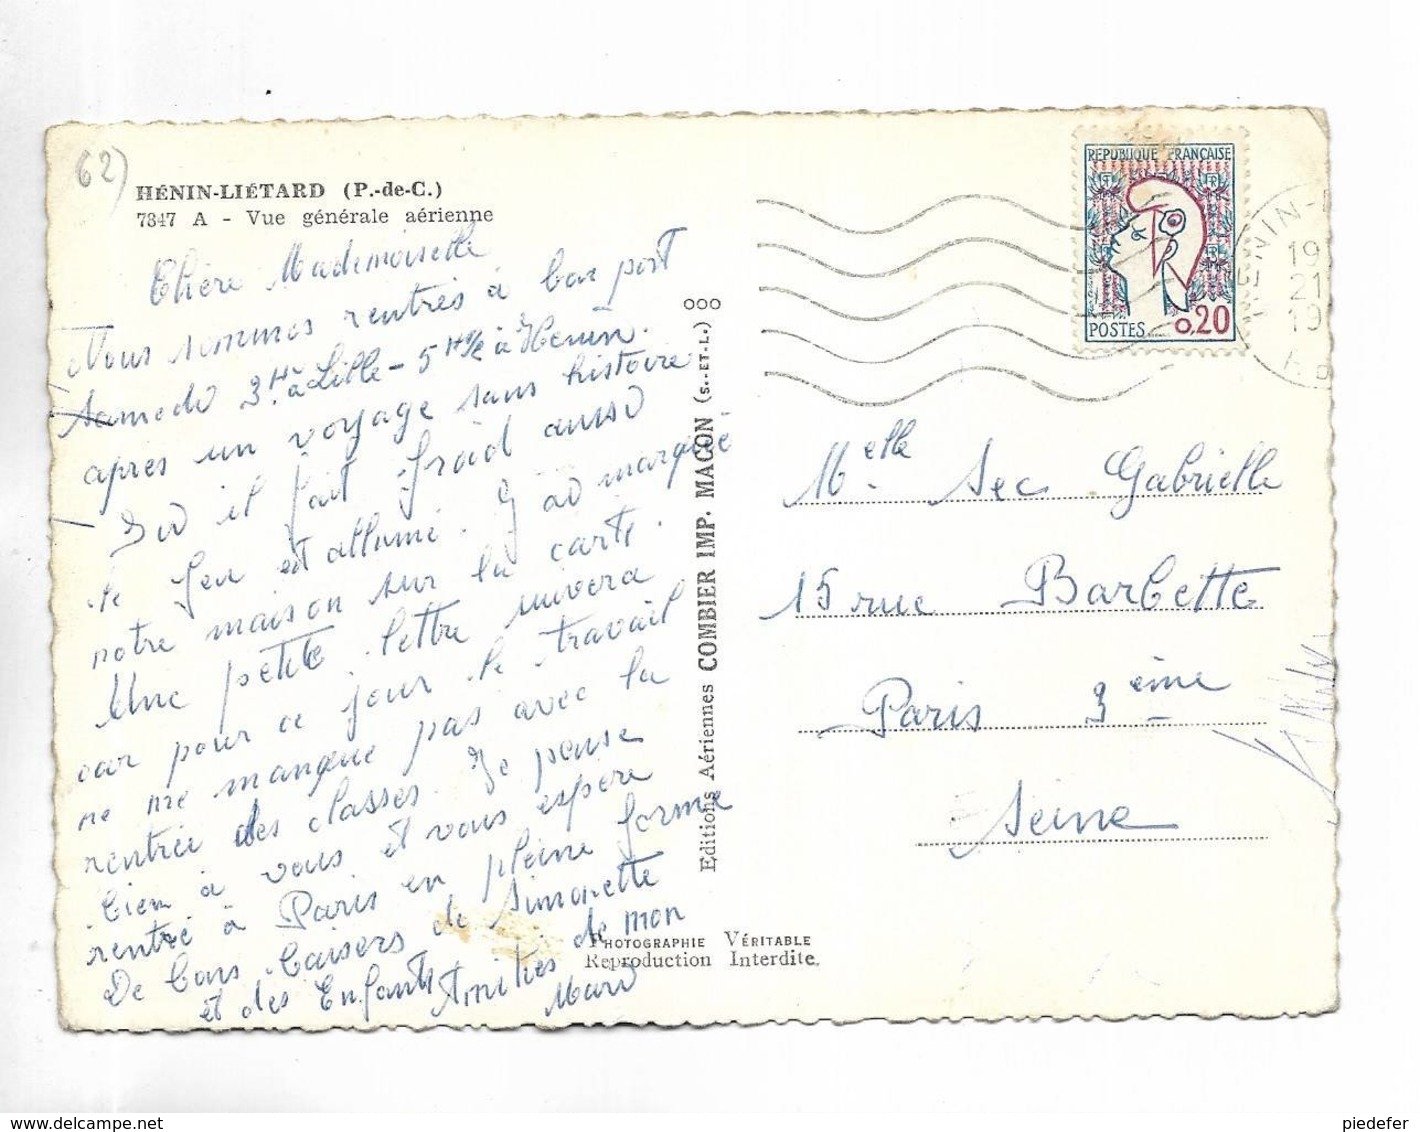 62)
HÉNIN-LIÉTARD (P.-de-C.)
7847 A - Vue générale aérienne
Chère Mademoiselle
Nous sommes rentrés à bon port
Samedi 3H. à Lille - 5H1/2 à Hénin.
après un voyage sans histoire
Ici il fait froid aussi
le feu est allumé. J'ai marqué
notre maison sur la carte.
Une petite lettre suivera
car pour ce jour le travail
ne me manque pas avec la
rentrée des classes. Je pense
bien à vous et vous espère
rentré à Paris en pleine forme
De bons baisers de Simonette
et des Enfants Amitiés de mon
Mari
OOO
Editions Aériennes COMBIER IMP. MACON (S.-ET-L.)
PHOTOGRAPHIE VÉRITABLE
Reproduction Interdite.
RÉPUBLIQUE FRANÇAISE
POSTES 0,20
HÉNIN-
19
21
19
Melle. Sec Gabrielle
15 rue Barbette
Paris 3ème
Seine
piedefer